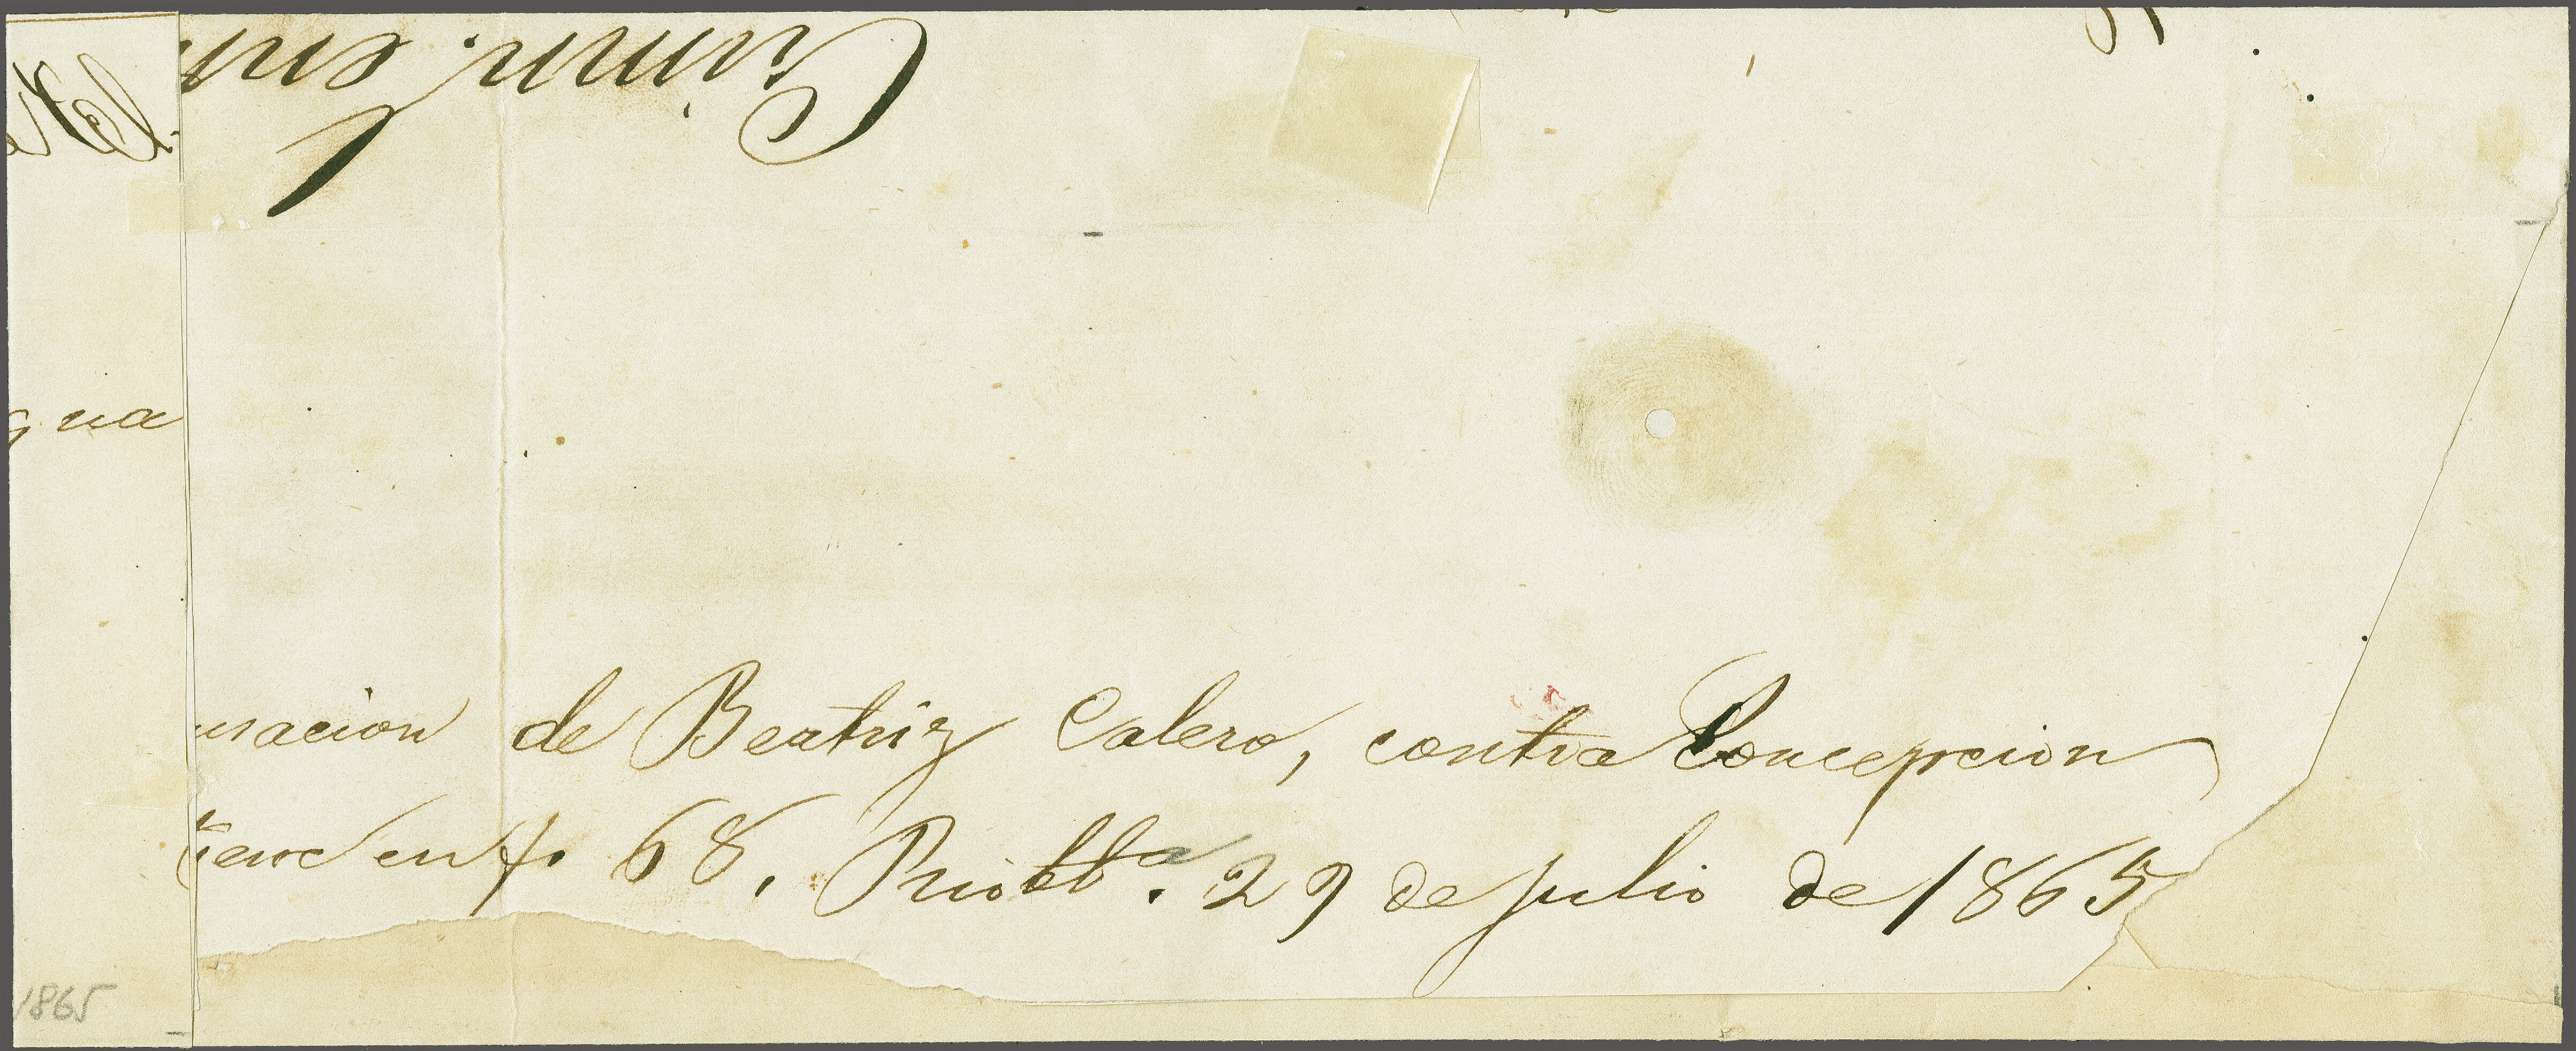 Crimin. en
gua
usacion de Beatriz Calero, contra Concepcion
tiene en f. 68. Priobbª. 29 de Julio de 1865
1865